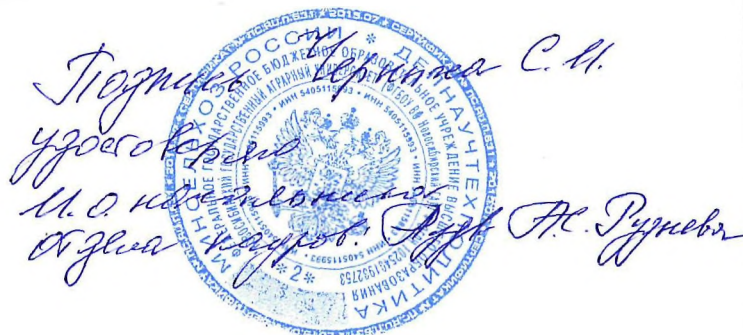 Подпись Черныха С.И.
удостоверяю
И.о. начальника
отдела кадров: А.С. Руднева
МИНСЕЛЬХОЗ РОССИИ * ДЕПНАУЧТЕХПОЛИТИКА
ФЕДЕРАЛЬНОЕ ГОСУДАРСТВЕННОЕ БЮДЖЕТНОЕ ОБРАЗОВАТЕЛЬНОЕ УЧРЕЖДЕНИЕ ВЫСШЕГО ОБРАЗОВАНИЯ
НОВОСИБИРСКИЙ ГОСУДАРСТВЕННЫЙ АГРАРНЫЙ УНИВЕРСИТЕТ (ФГБОУ ВО Новосибирский
ИНН 5405115993 * ИНН 5405115993
* 2 *